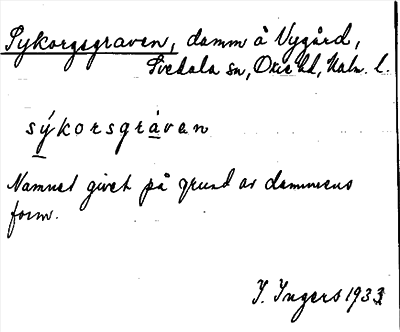 Sykorgsgraven, damm å Nygård,
Svedala sn, Oxie hd, Malm. l.
sýkorsgráven
Namnet givet på grund av dammens
form.
I. Ingers 1933